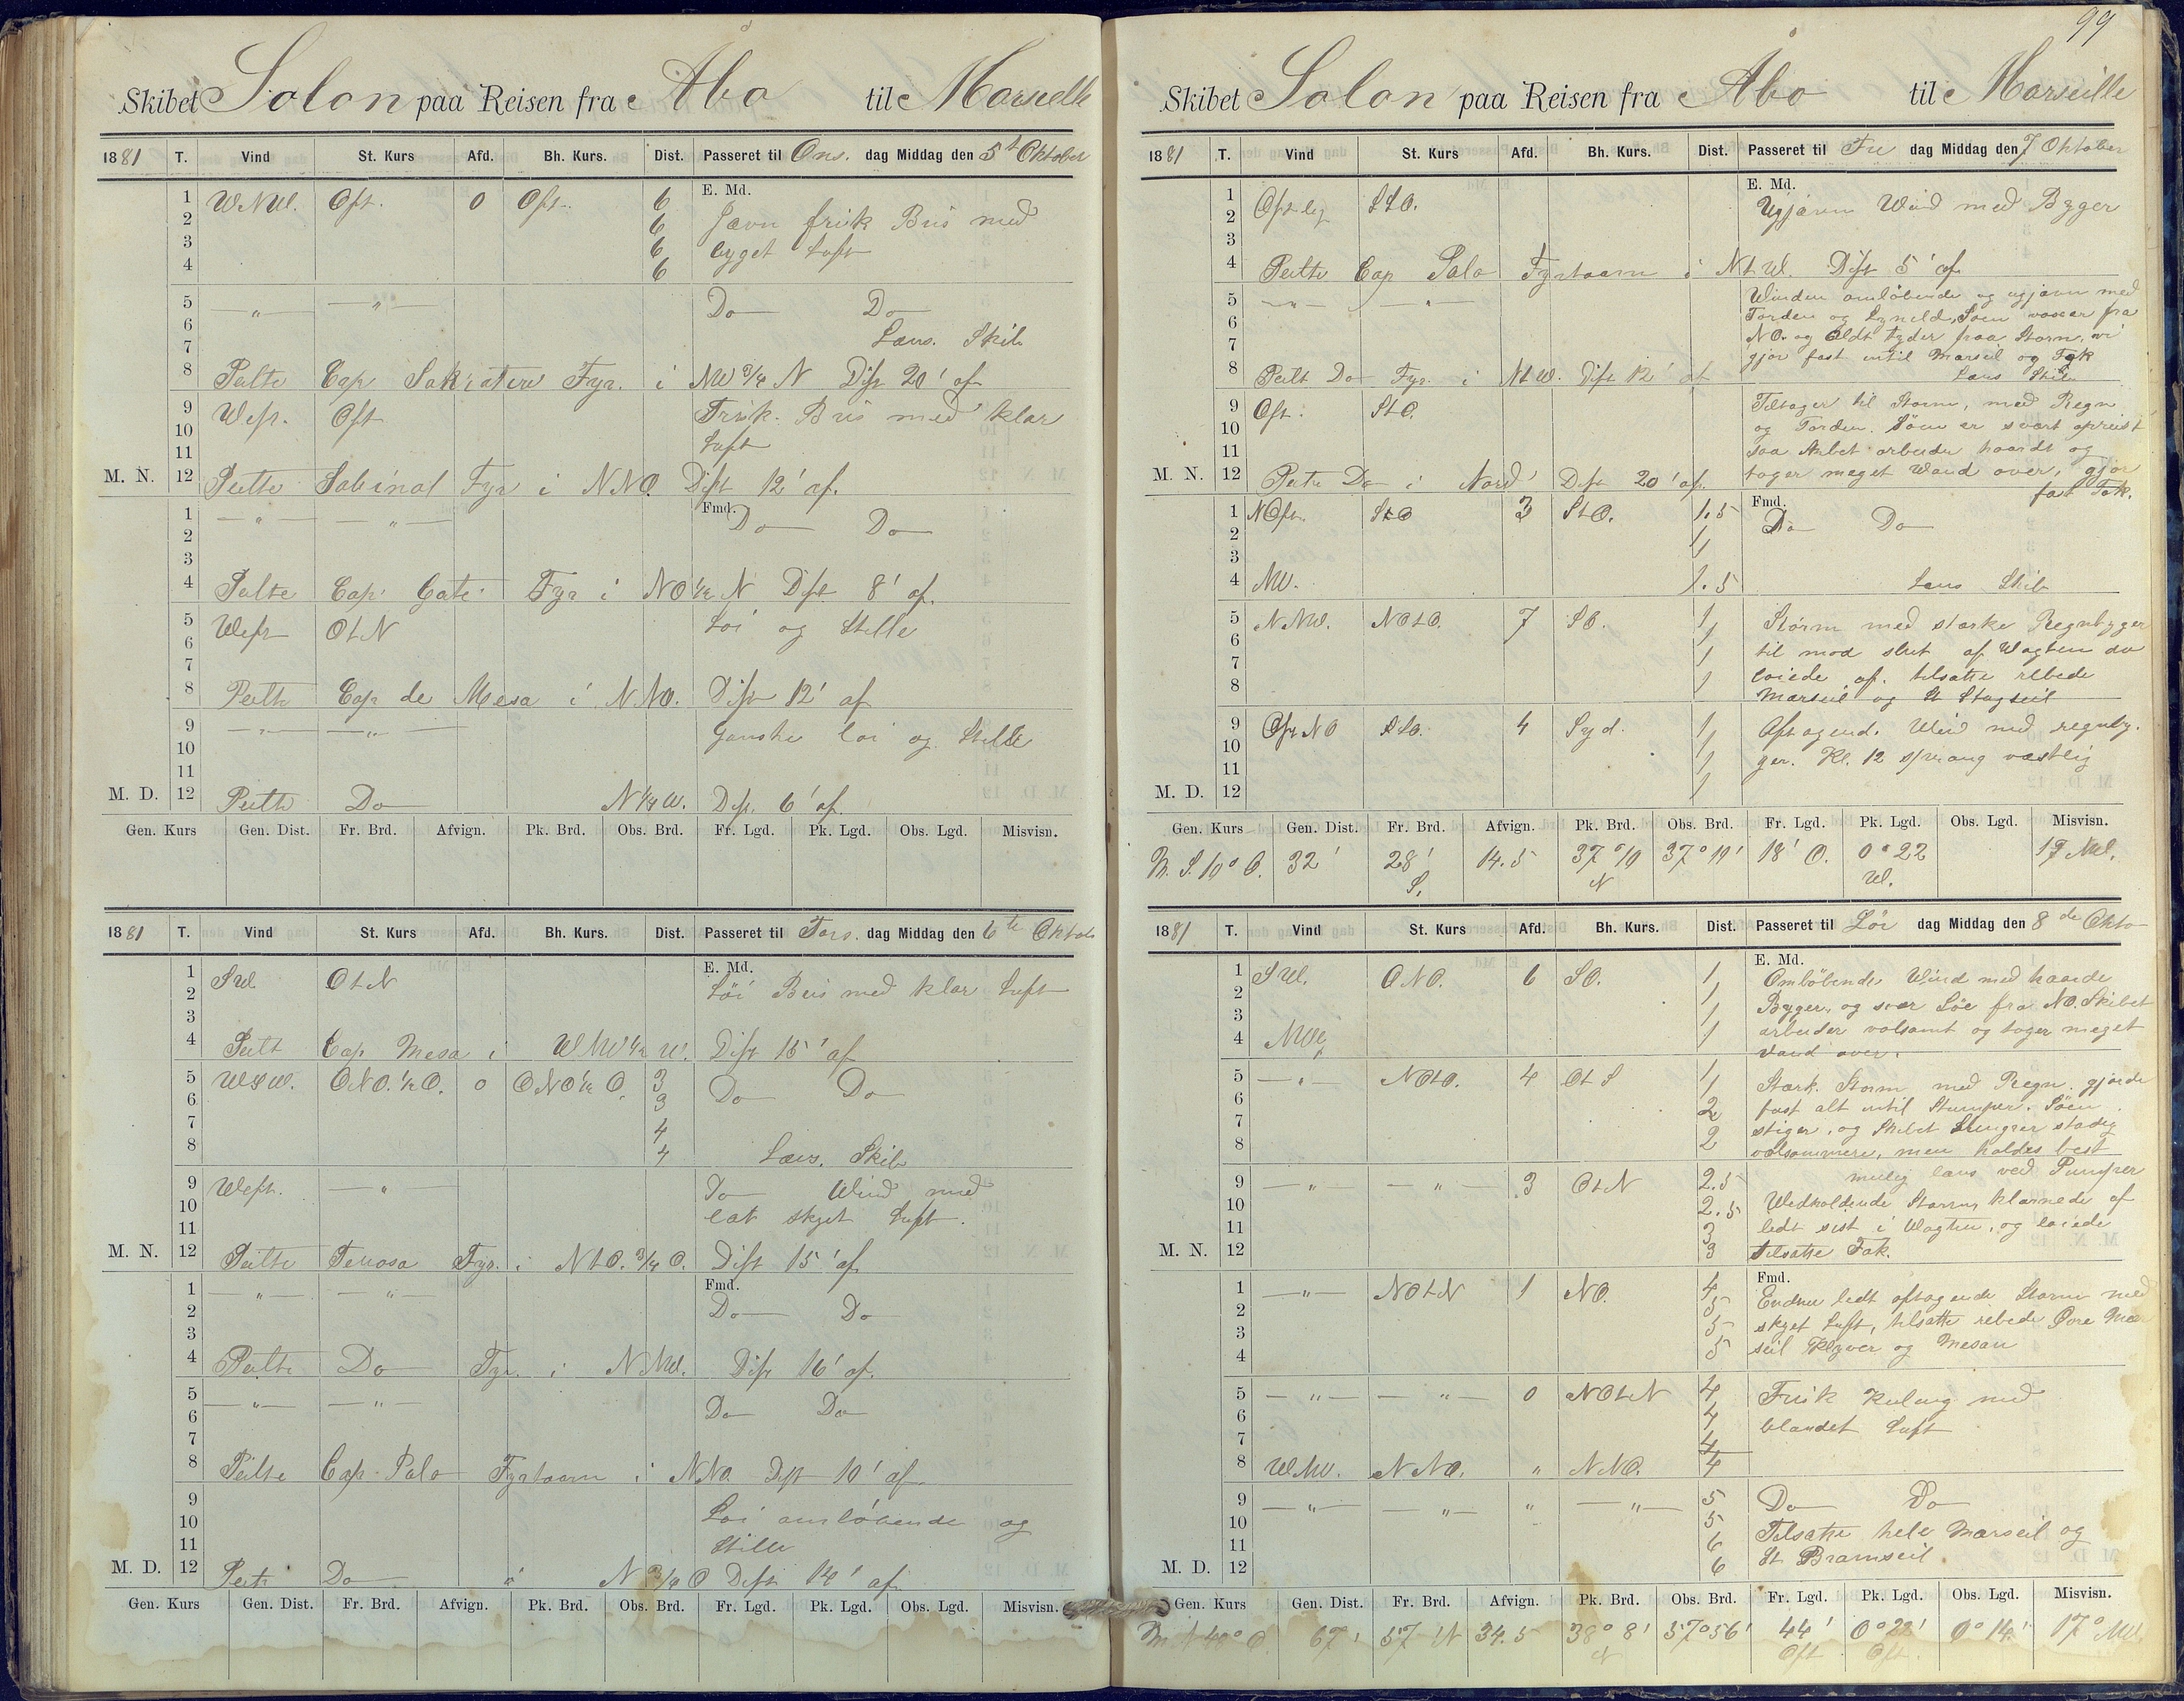 Skibet Solon paa Reisen fra Åbo til Marseille
1881 T. Vind St. Kurs Afd. Bh. Kurs. Dist. Passeret til Ons. dag Middag den 5t Oktober
E. Md.
1 WNW. Ost. 0 Ost. 6 Jævn frisk Bris med
2 6
3 6 byget Luft
4 6
5 — " — — " — Do Do
6
7 Læns. Skib
8 Peilte Cap Fyr. i NW 3/4 N Dist 20' af
9 West. Ost Frisk. Bris med klar
10 Luft
11
M. N. 12 Peilte Sabinal Fyr i NNO. Dist 12' af.
Fmd.
1 — " — — " — Do Do
2
3
4 Peilte Cap. Gate Fyr i NO 1/2 N Dist 8' af.
5 West OtN Löi og Stille
6
7
8 Peilte Cap de Mesa i NNO. Dist 12' af
9 — " — — " — Ganske löi og Stille
10
11
M. D. 12 Peilte Do N 1/4 W. Dist. 6' af.
Gen. Kurs Gen. Dist. Fr. Brd. Afvign. Pk. Brd. Obs. Brd. Fr. Lgd. Pk. Lgd. Obs. Lgd. Misvisn.
1881 T. Vind St. Kurs Afd. Bh. Kurs. Dist. Passeret til Tors. dag Middag den 6te Oktob
E. Md.
1 SW OtN Löi Bris med klar Luft
2
3
4 Peilt Cap Mesa i WNW 1/2 W. Dist 15' af
5 WSW. ONO. 1/2 O. 0 ONO 1/2 O. 3 Do Do
6 3
7 4
8 4 Læns. Skib
9 West. — " — Do Wind med
10 let skyet Luft.
11
M. N. 12 Peilte Fyr. i NtO. 3/4 O. Dist 15' af
Fmd.
1 — " — — " — Do Do
2
3
4 Peilte Do Fyr. i NNW. Dist 16' af.
5 — " — — " — Do Do
6
7
8 Peilte Cap Palo Fyrtaarn i NNO Dist 10' af
9
10 Löi omlöbende og
11 Stille
M. D. 12 Peilt Do " N 3/4 O Dist 14' af
Gen. Kurs Gen. Dist. Fr. Brd. Afvign. Pk. Brd. Obs. Brd. Fr. Lgd. Pk. Lgd. Obs. Lgd. Misvisn.
99
Skibet Solon paa Reisen fra Åbo til Marseille
1881 T. Vind St. Kurs Afd. Bh. Kurs. Dist. Passeret til Fre dag Middag den 7 Oktober
E. Md.
1 Ostlig SSO. Ugjævn Wind med Byger
2
3
4 Peilte Cap Palo Fyrtaarn i NtW. Dist 5' af
5 — " — — " — Winden omlöbende og ugjævn med
6 Torden og Lyneld, Söen voxer fra
7 NO. og Aldt tyder paa Storm, vi
gjör fast intil Marseil og Fok
8 Peilt Do Fyr. i NtW. Dist 12' af Læns Skib
9 Ost. StO. Tiltager til Storm, med Regn
10 og Torden. Söen er svært opreist
11 saa Skibet arbeider haardt og
M. N. 12 Peilte Do i Nord Dist 20' af. tager meget Wand over, gjör
fast Fok.
Fmd.
1 NOst. StO 3 StO. 1.5 Do Do
2 1
3 1
4 NW. 1.5 Læns Skib
5 NNW. NOtO. 7 SO. 1 Storm med stærke Regnbyger
6 1 til mod slut af Wagten da
7 1 löiede af. tilsatte rebede
8 1 Marseil og St Stagseil
9 OstNO StO. 4 Syd. 1 Aftagend. Wind med regnby-
10 1 ger. Kl. 12 sprang væstlig
11 1
M. D. 12 1
Gen. Kurs Gen. Dist. Fr. Brd. Afvign. Pk. Brd. Obs. Brd. Fr. Lgd. Pk. Lgd. Obs. Lgd. Misvisn.
M. S. 10° O. 32' 28' S. 14.5 37°10 N 37°19' 18' O. 0°22 W. 17 NW.
1881 T. Vind St. Kurs Afd. Bh. Kurs. Dist. Passeret til Lör dag Middag den 8de Okto
E. Md.
1 SW. ONO. 6 SO. 1 Omlöbende Wind med haarde
2 1 Byger, og svær Söe fra NO. Skibet
3 1 arbeider volsomt og tager meget
4 1 Vand over.
5 — " — NOtO. 4 OtS 1 Stærk Storm med Regn. gjorde
6 1 fast alt intil Stumper. Söen
7 2 stiger, og Skibet Slingrer stadig
8 2 volsommere, men holdes best
9 — " — — " — 3 OtN 2.5 mulig læns ved Pumper
10 2.5 Wedholdende Storm, klarnede af
11 3 lidt sist i Wagten, og löiede
M. N. 12 3 tilsatte Fok.
Fmd.
1 — " — NOtN 1 NO. 4 Endnu lidt aftagende Storm med
2 5 skyet Luft, tilsatte rebede Övre Mær
3 5 seil Klyver og Mesan
4 5
5 — " — — " — 0 NOtN 4 Frisk Kuling med
6 4 blandet Luft
7 4
8 WNW. NNO. " NNO. 4
9 — " — — " — " — " — 5 Do Do
10 5 Tilsatte hele Marseil og
11 6 St Bramseil.
M. D. 12 6
Gen. Kurs Gen. Dist. Fr. Brd. Afvign. Pk. Brd. Obs. Brd. Fr. Lgd. Pk. Lgd. Obs. Lgd. Misvisn.
M N 40° O 67' 57' N 34.5 38° 8' N 37°56' 44' Ost 0°22' Ost. 0°14' 17° NW.